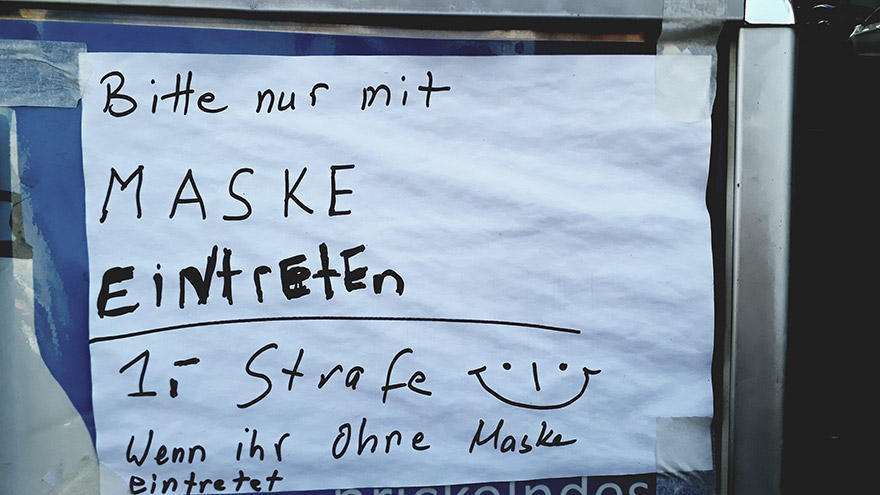 Bitte nur mit
MASKE
EiNtretEn
1.- Strafe
Wenn ihr Ohne Maske
eintretet
prickelndes